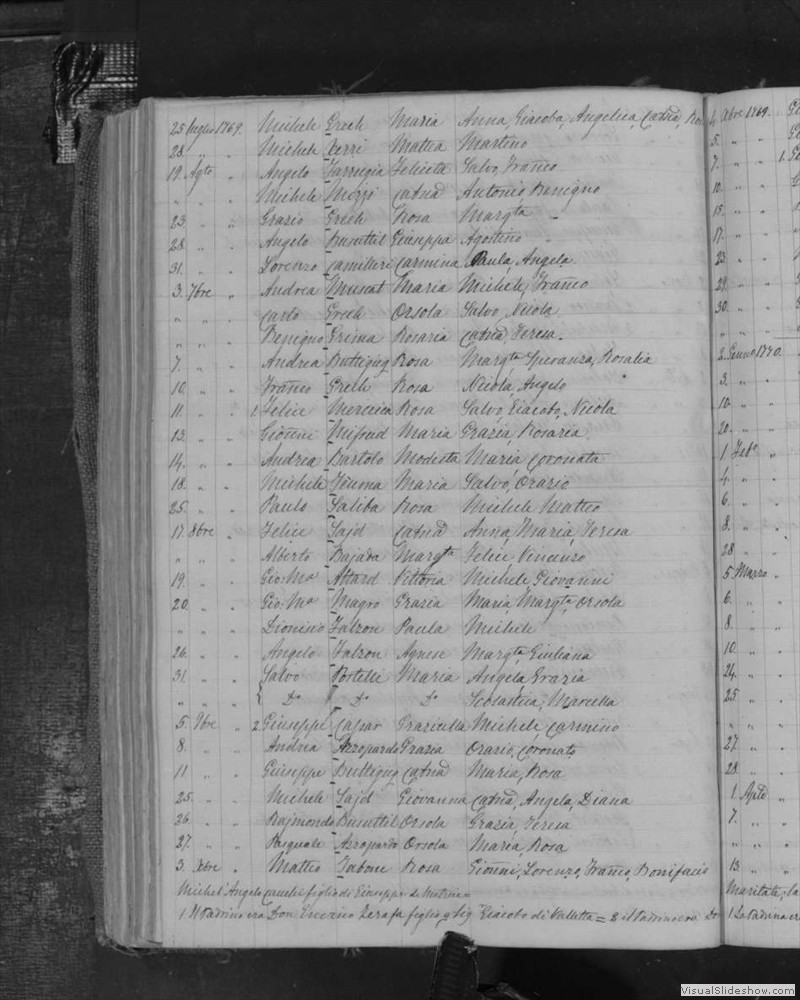 25 Luglio 1769. Michele Grech Maria Anna, Giacoba, Angelica, Catnā, Ros
28 " " Michele Xerri Mattea Martino
19. Agto " Angelo Farrugia Felicita Salvo, Franco
" " " Michele Mizzi Catnā Antonio Benigno
23. " " Grazio Grech Rosa Margta
28. " " Angelo Busuttil Giuseppa Agostino
31. " " Lorenzo Camilleri Carmina Paula, Angela
3. 7bre " Andrea Muscat Maria Michele, Franco
" " " Carlo Grech Orsola Salvo, Nicola
" " " Benigno Grima Rosaria Catnā, Teresa
7. " " Andrea Buttigieg Rosa Margta Speranza, Rosalia
10. " " Franco Grech Rosa Nicola, Angelo
11. " " 1 Felice Mercieca Rosa Salvo, Giacobo, Nicola
13. " " Gionni Mifsud Maria Grazia, Rosaria
14. " " Andrea Bartolo Modesta Maria Coronata
18. " " Michele Maria Salvo, Orazio
25. " " Paulo Saliba Rosa Michele Matteo
17. 8bre " Felice Sajd Catnā Anna, Maria, Teresa
" " " Alberto Bajada Margta Felice Vincenzo
19. " " Gio: Ma Attard Vittoria Michele Giovanni
20. " " Gio: Ma Magro Grazia Maria, Margta, Orsola
" " " Dionisio Falzon Paula Michele
26. " " Angelo Falzon Agnese Margta, Giuliana
31. " " Salvo Portelli Maria Angela, Grazia
" " " { Do Do Do Scolastica, Marcella
5. 9bre " 2 Giuseppe Capar Graziulla Michele Carmino
8. " " Andrea Azzopardo Grazia Orazio, Coronato
11 " " Giuseppe Buttigieg Catnā Maria, Rosa
25. " " Michele Sajd Giovanna Catnā, Angela, Diana
26. " " Rajmondo Busuttil Orsola Grazia, Teresa
27. " " Pasquale Azzopardo Orsola Maria, Rosa
3. Xbre " Matteo Tabone Rosa Gionni, Lorenzo, Franco, Bonifacio
Michel'Angelo figlio di Giuseppe
1 Il Padrino era Don Zerafa figlio q Sig Giacobo di Valletta = 2 il Padrino era Do
4 Xbre 1769.
5. " "
7. " " 1.
10. " "
15. " "
17. " "
23. " "
29. " "
30. " "
" " "
2. Genno 1770.
3. " "
10. " "
20. " "
1 Febo "
4. " "
6. " "
8. " "
28. " "
5 Marzo "
6. " "
8. " "
10. " "
24. " "
25. " "
" " "
27. " "
28. " "
1. Aple "
7. " "
" " "
13. " "
Maritata, la
1 La Padrina era
VisualSlideshow.com